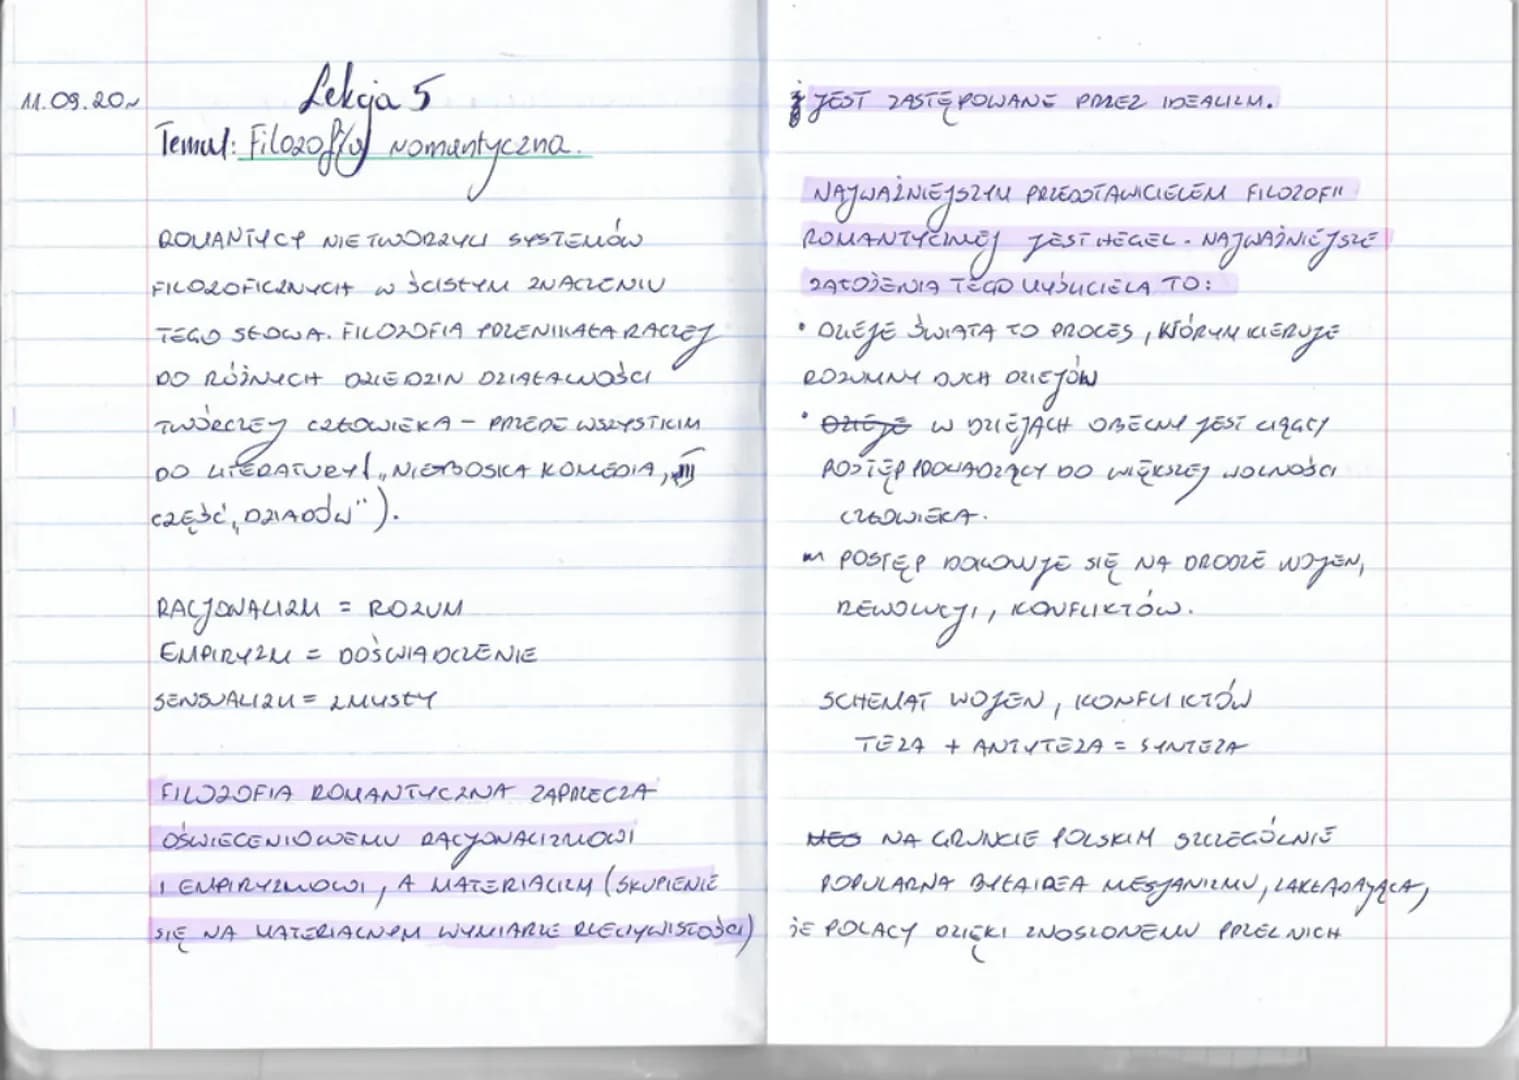 11.09.20~
Lekcja 5
Temat: Filozofia romantyczna.
ROMANTYCY NIE TWORZYLI SYSTEMÓW
FILOZOFICZNYCH W ŚCISŁYM ZNACZENIU
TEGO SŁOWA. FILOZOFIA PRZENIKAŁA RACZEJ
DO RÓŻNYCH DZIEDZIN DZIAŁALNOŚCI
TWÓRCZEJ CZŁOWIEKA - PRZEDE WSZYSTKIM
DO LITERATURY („NIEBOSKA KOMEDIA, III
CZĘŚĆ „DZIADÓW").
RACJONALIZM = ROZUM
EMPIRYZM = DOŚWIADCZENIE
SENSUALIZM = ZMYSŁY
FILOZOFIA ROMANTYCZNA ZAPRZECZA
OŚWIECENIOWEMU RACJONALIZMOWI
I EMPIRYZMOWI, A MATERIALIZM (SKUPIENIE
SIĘ NA MATERIALNYM WYMIARZE RZECZYWISTOŚCI)
JEST ZASTĘPOWANE PRZEZ IDEALIZM.
NAJWAŻNIEJSZYM PRZEDSTAWICIELEM FILOZOFII
ROMANTYCZNEJ JEST HEGEL. NAJWAŻNIEJSZE
ZAŁOŻENIA TEGO MYŚLICIELA TO:
• DZIEJE ŚWIATA TO PROCES, KTÓRYM KIERUJE
ROZUMNY DUCH DZIEJÓW
• DZIEJE W DZIEJACH OBECNY JEST CIĄGŁY
POSTĘP PROWADZĄCY DO WIĘKSZEJ WOLNOŚCI
CZŁOWIEKA.
POSTĘP DOKONUJE SIĘ NA DRODZE WOJEN,
REWOLUCJI, KONFLIKTÓW.
SCHEMAT WOJEN, KONFLIKTÓW
TEZA + ANTYTEZA = SYNTEZA
NA GRUNCIE POLSKIM SZCZEGÓLNIE
POPULARNA BYŁA IDEA MESJANIZMU, ZAKŁADAJĄCA,
ŻE POLACY DZIĘKI ZNOSZONEMU PRZEZ NICH